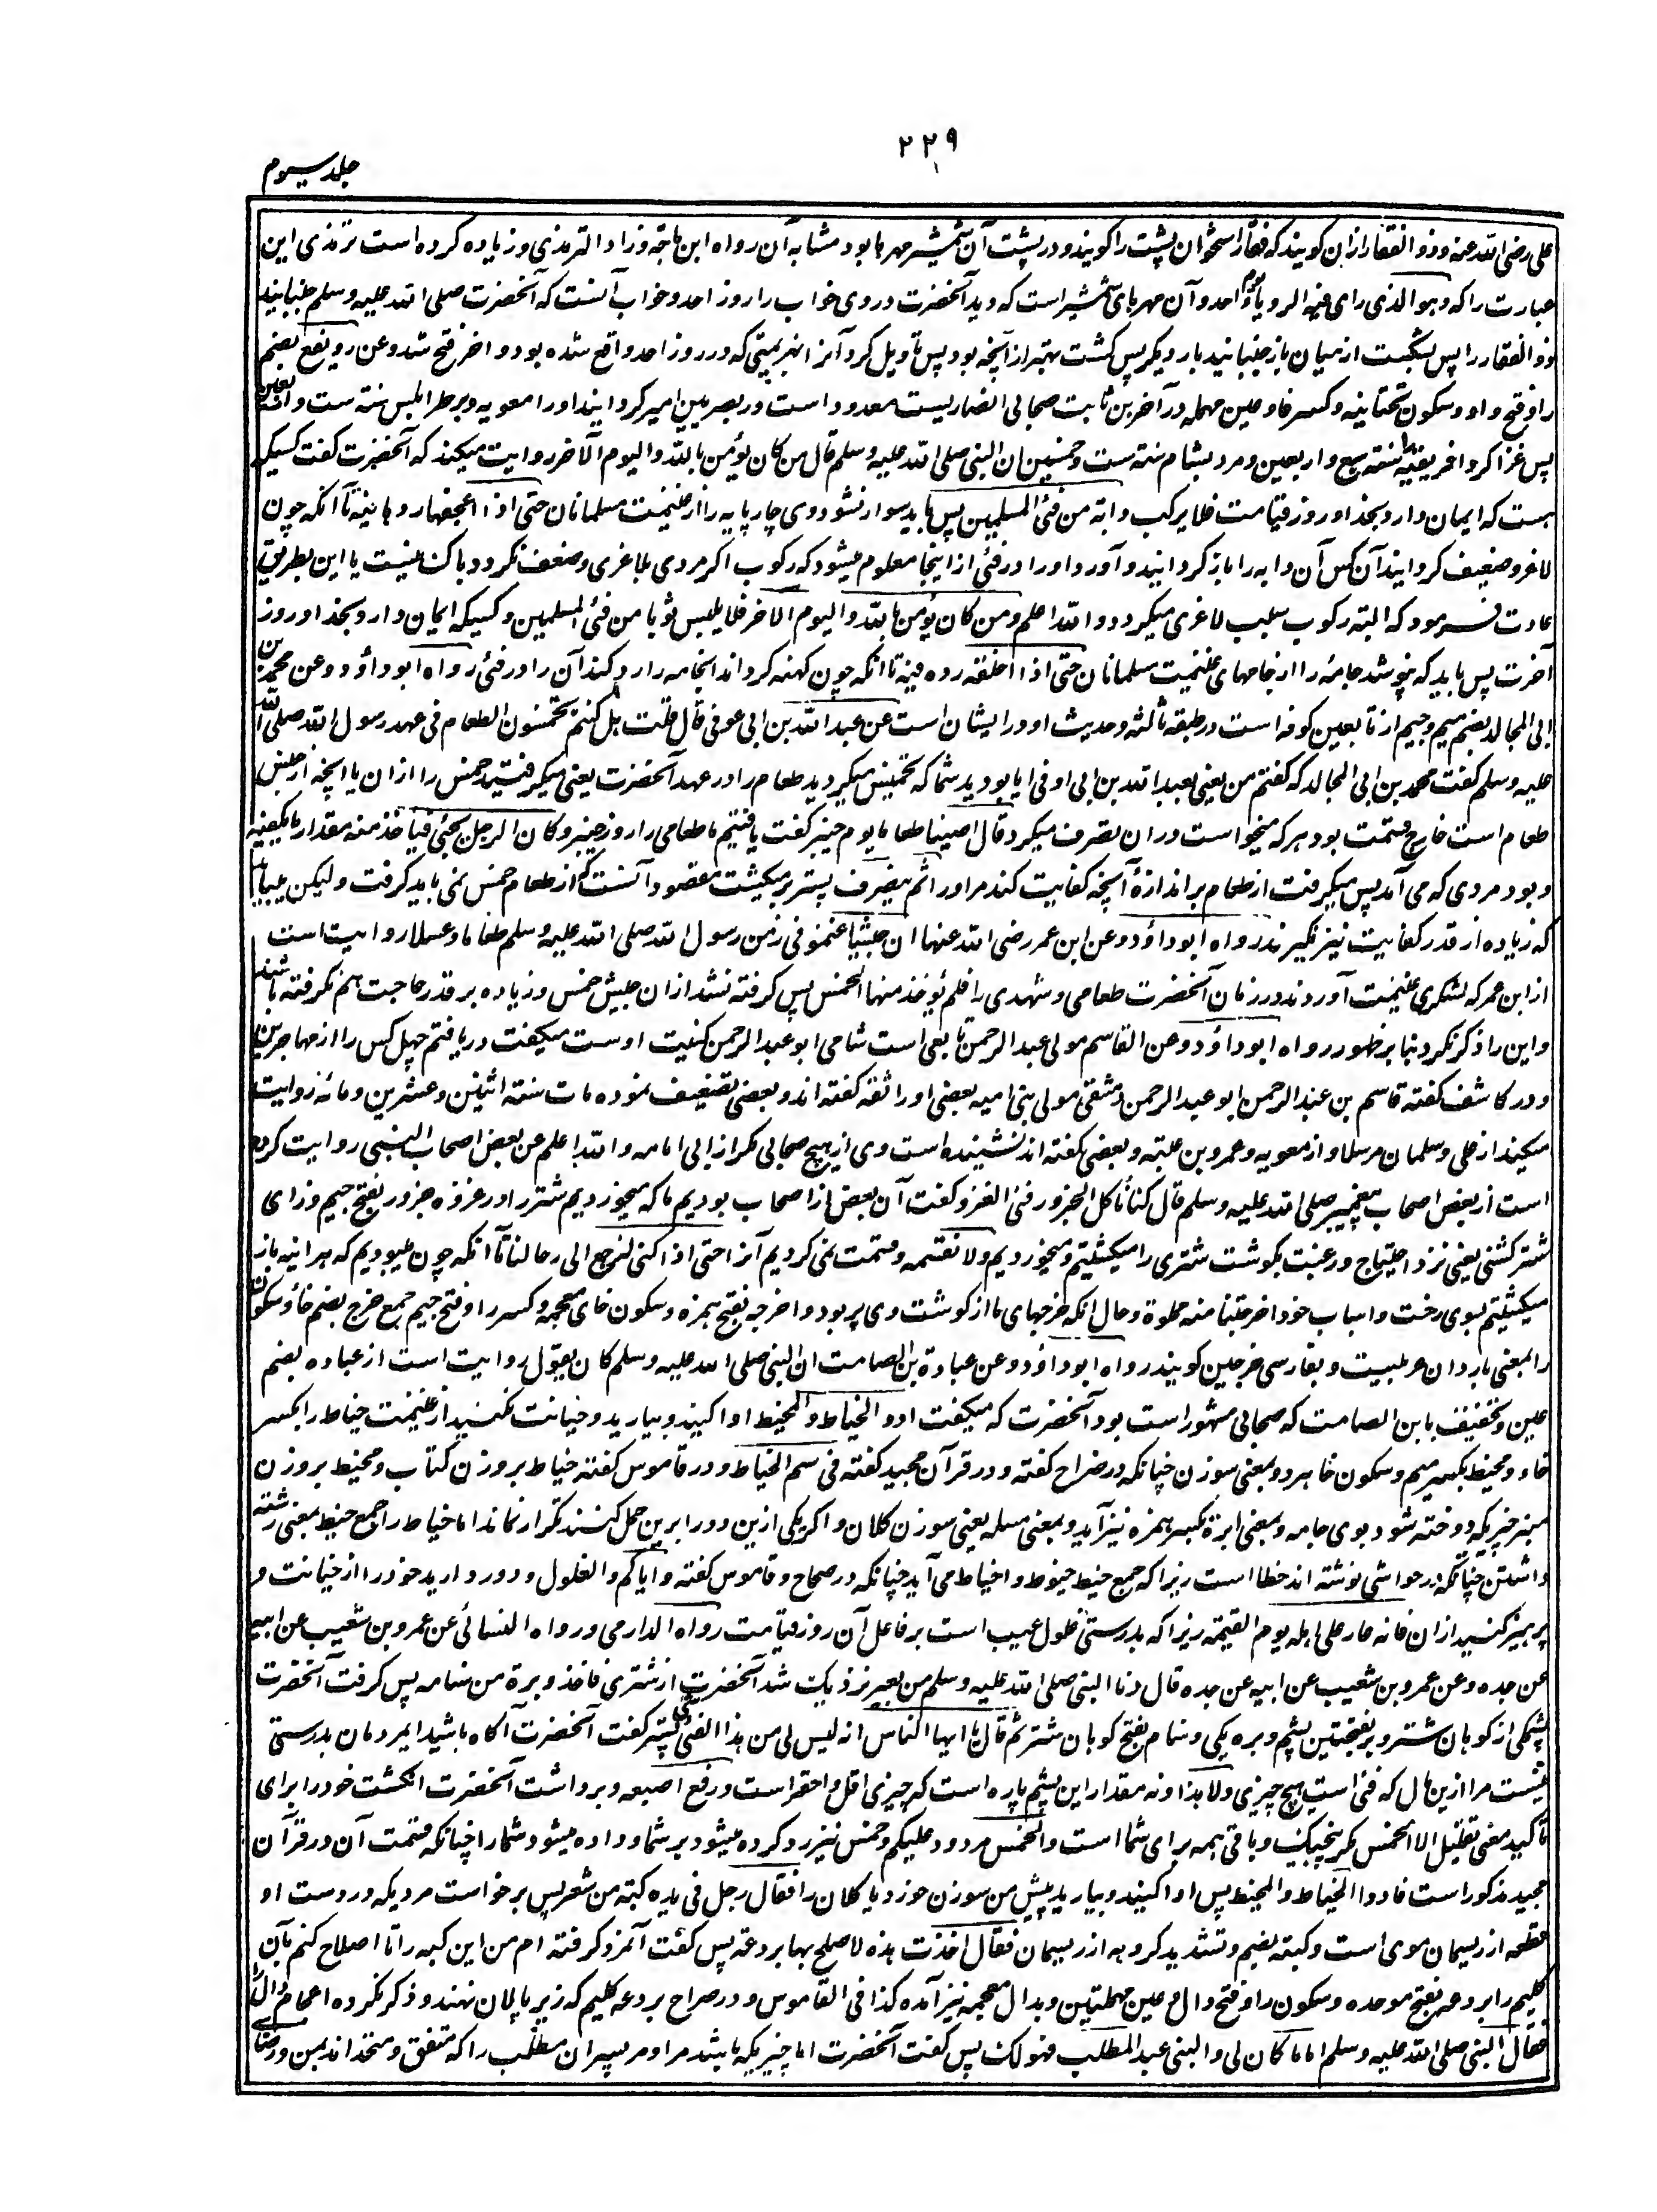 ۲۲۹
جلد سیوم
علی رضی الله عنه و ذو الفقار ازان کویند که فقار استخوان پشت را کویند و در پشت آن شمشیر مهرها بود مشابه آن رواه ابن ماجة و زاد الترمذی و زیاده کرده است ترمذی این
عبارت را که و هو الذی رای فیه الرویا یوم احد و آن مهرهای شمشیر است که دید آنحضرت در وی خواب را روز احد و خواب آنست که آنحضرت صلی الله علیه وسلم جنبانید
ذو الفقار را پس بشکست از میان باز جنبانید بار دیکر پس کشت بهتر از آنچه بود پس تاویل کرد آنرا بهزیمتی که در روز احد واقع شده بود و اخر فتح شد و عن رویفع بضم
را و فتح واو و سکون تحتانیه و کسر فا و عین مهمله در آخر بن ثابت صحابی انصاریست معدود است در بصریین امیر کردانید او را معویه بر طرابلس سنه ست و اربعین
پس غزا کرد افریقیه سنه سبع و اربعین و مرد بشام سنه ست و خمسین ان النبی صلی الله علیه وسلم قال من کان یؤمن بالله و الیوم الآخر روایت میکند که آنحضرت کفت کسیکه
هست که ایمان دارد بخدا و روز قیامت فلا یرکب دابة من فئ المسلمین پس باید سوار نشود وی چارپایه را از غنیمت مسلمانان حتی اذا اعجفها ردها فیه تا آنکه چون
لاغر و ضعیف کردانید آن کس آن دابه را باز کردانید و آورد او را در فئ از اینجا معلوم میشود که رکوب اکر مردی بلاغری و ضعف نکرد باک نیست یا این بطریق
عادت فرمود که البته رکوب سبب لاغری میکردد و الله اعلم و من کان یؤمن بالله و الیوم الآخر فلا یلبس ثوبا من فئ المسلمین و کسیکه ایمان دارد بخدا و روز
آخرت پس باید که نپوشد جامه را از جامهای غنیمت مسلمانان حتی اذا اخلقه رده فیه تا آنکه چون کهنه کرداند انجامه را رد کند آن را در فئ رواه ابو داؤد و عن محمد بن
ابی المجالد بضم میم و جیم از تابعین کوفه است در طبقه ثالثه و حدیث او در ایشان است عن عبد الله بن ابی اوفی قال قلت هل کنتم تخمسون الطعام فی عهد رسول الله صلی الله
علیه وسلم کفت محمد بن ابی المجالد که کفتم من یعنی بعبد الله بن ابی اوفی ایا بودید شما که تخمیس میکردید طعام را در عهد آنحضرت یعنی میکرفتید خمس را ازان یا آنچه از جنس
طعام است خارج قسمت بود هر که میخواست دران تصرف میکرد قال اصبنا طعاما یوم خیبر کفت یافتیم ما طعامی را روز خیبر و کان الرجل یجئ فیاخذ منه مقدار ما یکفیه
و بود مردی که می آمد پس میکرفت از طعام بر اندازهٔ آنچه کفایت کند مر او را ثم ینصرف پستر برمیکشت مقصود آنست که از طعام خمس نمی باید کرفت و لیکن میباید
که زیاده از قدر کفایت نیز نکیرند رواه ابو داؤد و عن ابن عمر رضی الله عنهما ان جیشا غنموا فی زمن رسول الله صلی الله علیه وسلم طعاما و عسلا روایت است
از ابن عمر که لشکری غنیمت آوردند در زمان آنحضرت طعامی و شهدی را فلم یؤخذ منها الخمس پس کرفته نشد ازان جیش خمس و زیاده بر قدر حاجت هم نکرفته باشند
و این را ذکر نکرد بنا بر ظهور رواه ابو داؤد و عن القاسم مولی عبد الرحمن تابعی است شامی ابو عبد الرحمن کنیت اوست میکفت دریافتم چهل کس را از مهاجرین
و در کاشف کفته قاسم بن عبد الرحمن ابو عبد الرحمن دمشقی مولی بنی امیه بعضی او را ثقه کفته اند و بعضی تضعیف نموده مات سنة اثنین و عشرین و مائه روایت
میکند از علی و سلمان مرسلا و از معویه و عمرو بن عبسه و بعضی کفته اند نشنیده است وی از هیچ صحابی مکر از ابی امامه و الله اعلم عن بعض اصحاب النبی روایت کرده
است از بعض اصحاب پیغمبر صلی الله علیه وسلم قال کنا ناکل الجزور فی الغزو کفت آن بعض از اصحاب بودیم ما که میخوردیم شتر را در غزوه جزور بفتح جیم و زای
شتر کشتنی یعنی نزد احتیاج و رغبت بکوشت شتری را میکشتیم و میخوردیم و لا نقسمه و قسمت نمی کردیم آنرا حتی اذا کنا لنرجع الی رحالنا تا آنکه چون میبودیم که هر انیه باز
میکشتیم بسوی رخت و اسباب خود اخرجتنا منه مملوة و حال آنکه خرجهای ما از کوشت وی پر بود و اخرجه بفتح همزه و سکون خای معجمه و کسر را و فتح جیم جمع خرج بضم خا و سکون
را بمعنی باردان عربیست و بفارسی خرجین کویند رواه ابو داؤد و عن عبادة بن الصامت ان النبی صلی الله علیه وسلم کان یقول روایت است از عباده بضم
عین و تخفیف با بن الصامت که صحابی مشهور است بود آنحضرت که میکفت ادوا الخیاط و المخیط ادا کنید و بیارید و خیانت نکنید از غنیمت خیاط را بکسر
خاء و مخیط بکسر میم و سکون خا هر دو بمعنی سوزن چنانکه در صراح کفته و در قرآن مجید کفته فی سم الخیاط و در قاموس کفته خیاط بر وزن کتاب و مخیط بر وزن
منبر چیزیکه دوخته شود بوی جامه و بمعنی ابرة بکسر همزه نیز آید و بمعنی مسله یعنی سوزن کلان و اکر یکی ازین دو را برین حمل کنند تکرار نماند اما خیاط را جمع خیط بمعنی رشته
داشتن چنانکه در حواشی نوشته اند خطا است زیرا که جمع خیط خیوط و اخیاط می آید چنانکه در صحاح و قاموس کفته و ایاکم و الغلول و دور دارید خود را از خیانت و
پرهیز کنید ازان فانه عار علی اهله یوم القیمة زیرا که بدرستی غلول عیب است بر فاعل آن روز قیامت رواه الدارمی و رواه النسائی عن عمرو بن شعیب عن ابیه
عن جده و عن عمرو بن شعیب عن ابیه عن جده قال دنا النبی صلی الله علیه وسلم من بعیر نزدیک شد آنحضرت از شتری فاخذ وبرة من سنامه پس کرفت آنحضرت
پشمکی از کوهان شتر وبر بفتحتین پشم و وبره یکی و سنام بفتح کوهان شتر ثم قال یا ایها الناس انه لیس لی من هذا الفئ شئ پستر کفت آنحضرت آکاه باشید ایمردمان بدرستی
نیست مرا ازین مال که فئ است هیچ چیزی و لا هذا و نه مقدار این پشم پاره است که چیزی اقل و احقر است و رفع اصبعه و برداشت آنحضرت انکشت خود را برای
تاکید معنی تقلیل الا الخمس مکر پنجیک و باقی همه برای شما است و الخمس مردود علیکم و خمس نیز رد کرده میشود بر شما و داده میشود شما را چنانکه قسمت آن در قرآن
مجید مذکور است فادوا الخیاط و المخیط پس ادا کنید و بیارید پیش من سوزن خورد یا کلان را فقام رجل فی یده کبة من شعر پس برخواست مردیکه در دست او
قطعه از ریسمان موی است و کبة بضم و تشدید کروهه از ریسمان فقال اخذت هذه لاصلح بها بردعة پس کفت آنمرد کرفته ام من این کبه را تا اصلاح کنم بآن
کلیم را بردعه بفتح موحده و سکون را و فتح دال و عین مهملتین و بدال معجمه نیز آمده کذا فی القاموس و در صراح بردعه کلیم که زیر پالان نهند و ذکر نکرده اعجام دال را
فقال النبی صلی الله علیه وسلم اما ما کان لی و لبنی عبد المطلب فهو لک پس کفت آنحضرت اما چیزیکه باشد مرا و مر پسران مطلب را که متفق و متحد اند بمن و رضای